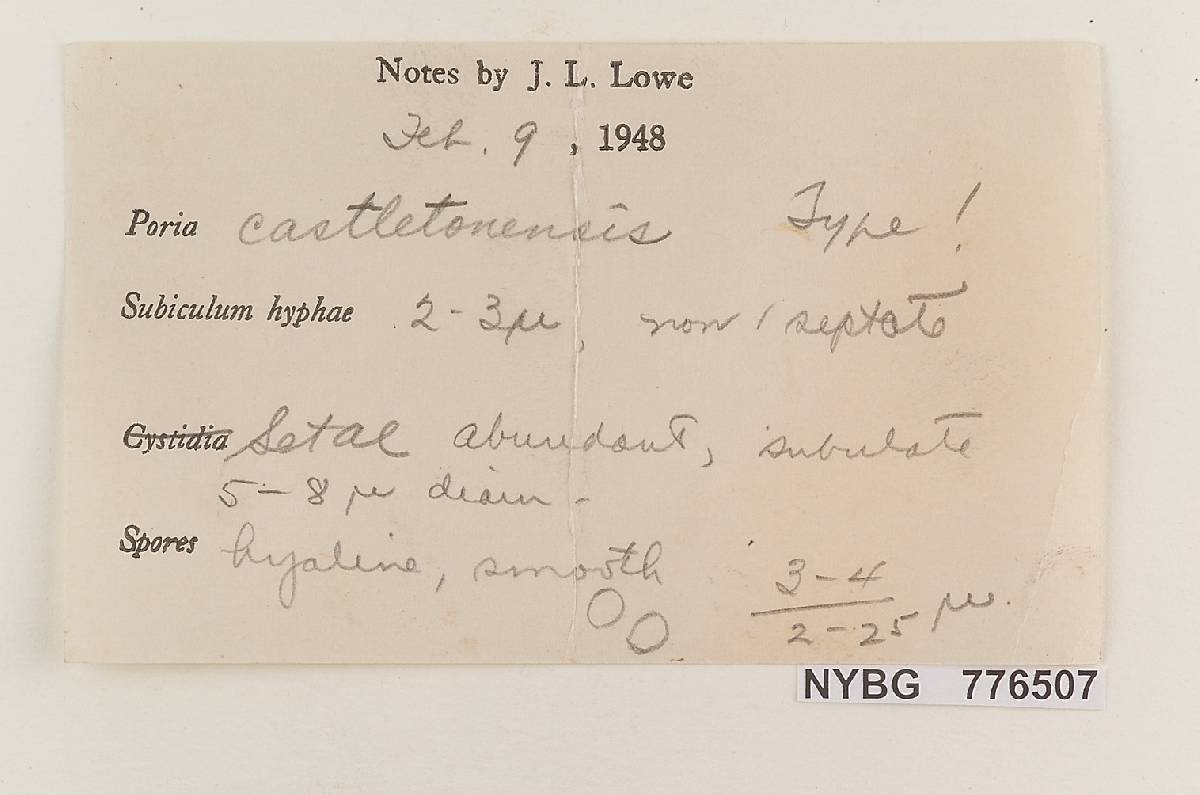 Notes by J. L. Lowe
Feb. 9, 1948
Poria castletonensis Type!
Subiculum hyphae 2-3µ, non septate
Cystidia Setae abundant, subulate
5-8 µ diam-
Spores hyaline, smooth 3-4
2-25 µ.
NYBG 776507